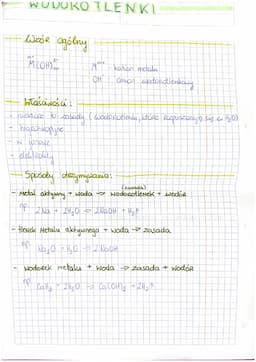 WODOROTLENKI
Wzór ogólny
M(OH)
M - kation metalu
OH⁻ anion wodorotlenkowy
Właściwości :
- zasady (wodorotlenki, które rozpuszczają się w H₂O)
Sposoby otrzymywania:
(zasada)
- Metal aktywny + woda → wodorotlenek + wodór
np. 2Na + 2H₂O → 2NaOH + H₂↑
- tlenek metalu aktywnego + woda → zasada
np. Na₂O + H₂O → 2NaOH
- wodorek metalu + woda → zasada + wodór
np. CaH₂ + 2H₂O → Ca(OH)₂ + 2H₂↑